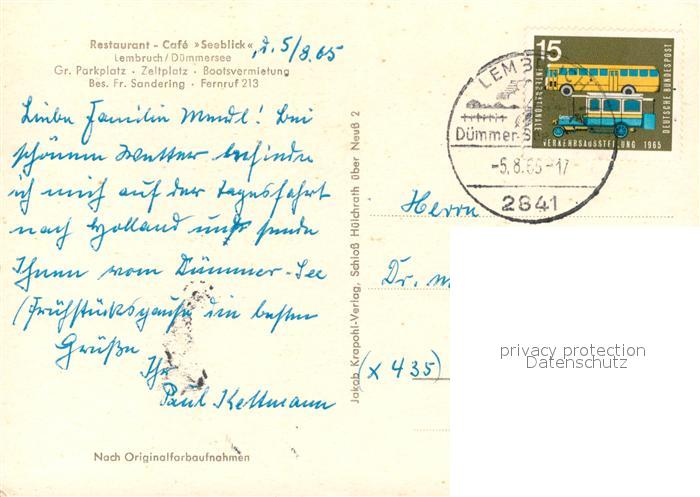 Restaurant - Café »Seeblick«, d. 5/8.65
Lembruch/Dümmersee
Gr. Parkplatz · Zeltplatz · Bootsvermietung
Bes. Fr. Sandering · Fernruf 213
Liebe Familie Mendl! Bei
schönem Wetter befinde
ich mich auf der Tagesfahrt
nach Holland und sende
Ihnen vom Dümmer-See
(Frühstückspause) die besten
Grüße
Ihr
Paul Kettmann
Nach Originalfarbaufnahmen
Jakob Krapohl-Verlag, Schloß Hülchrath über Neuß 2
15
INTERNATIONALE
VERKEHRSAUSSTELLUNG 1965
DEUTSCHE BUNDESPOST
LEMB
Dümmer-S
-5.8.65-17
2841
Herrn
Dr. m
(x 435)
privacy protection
Datenschutz